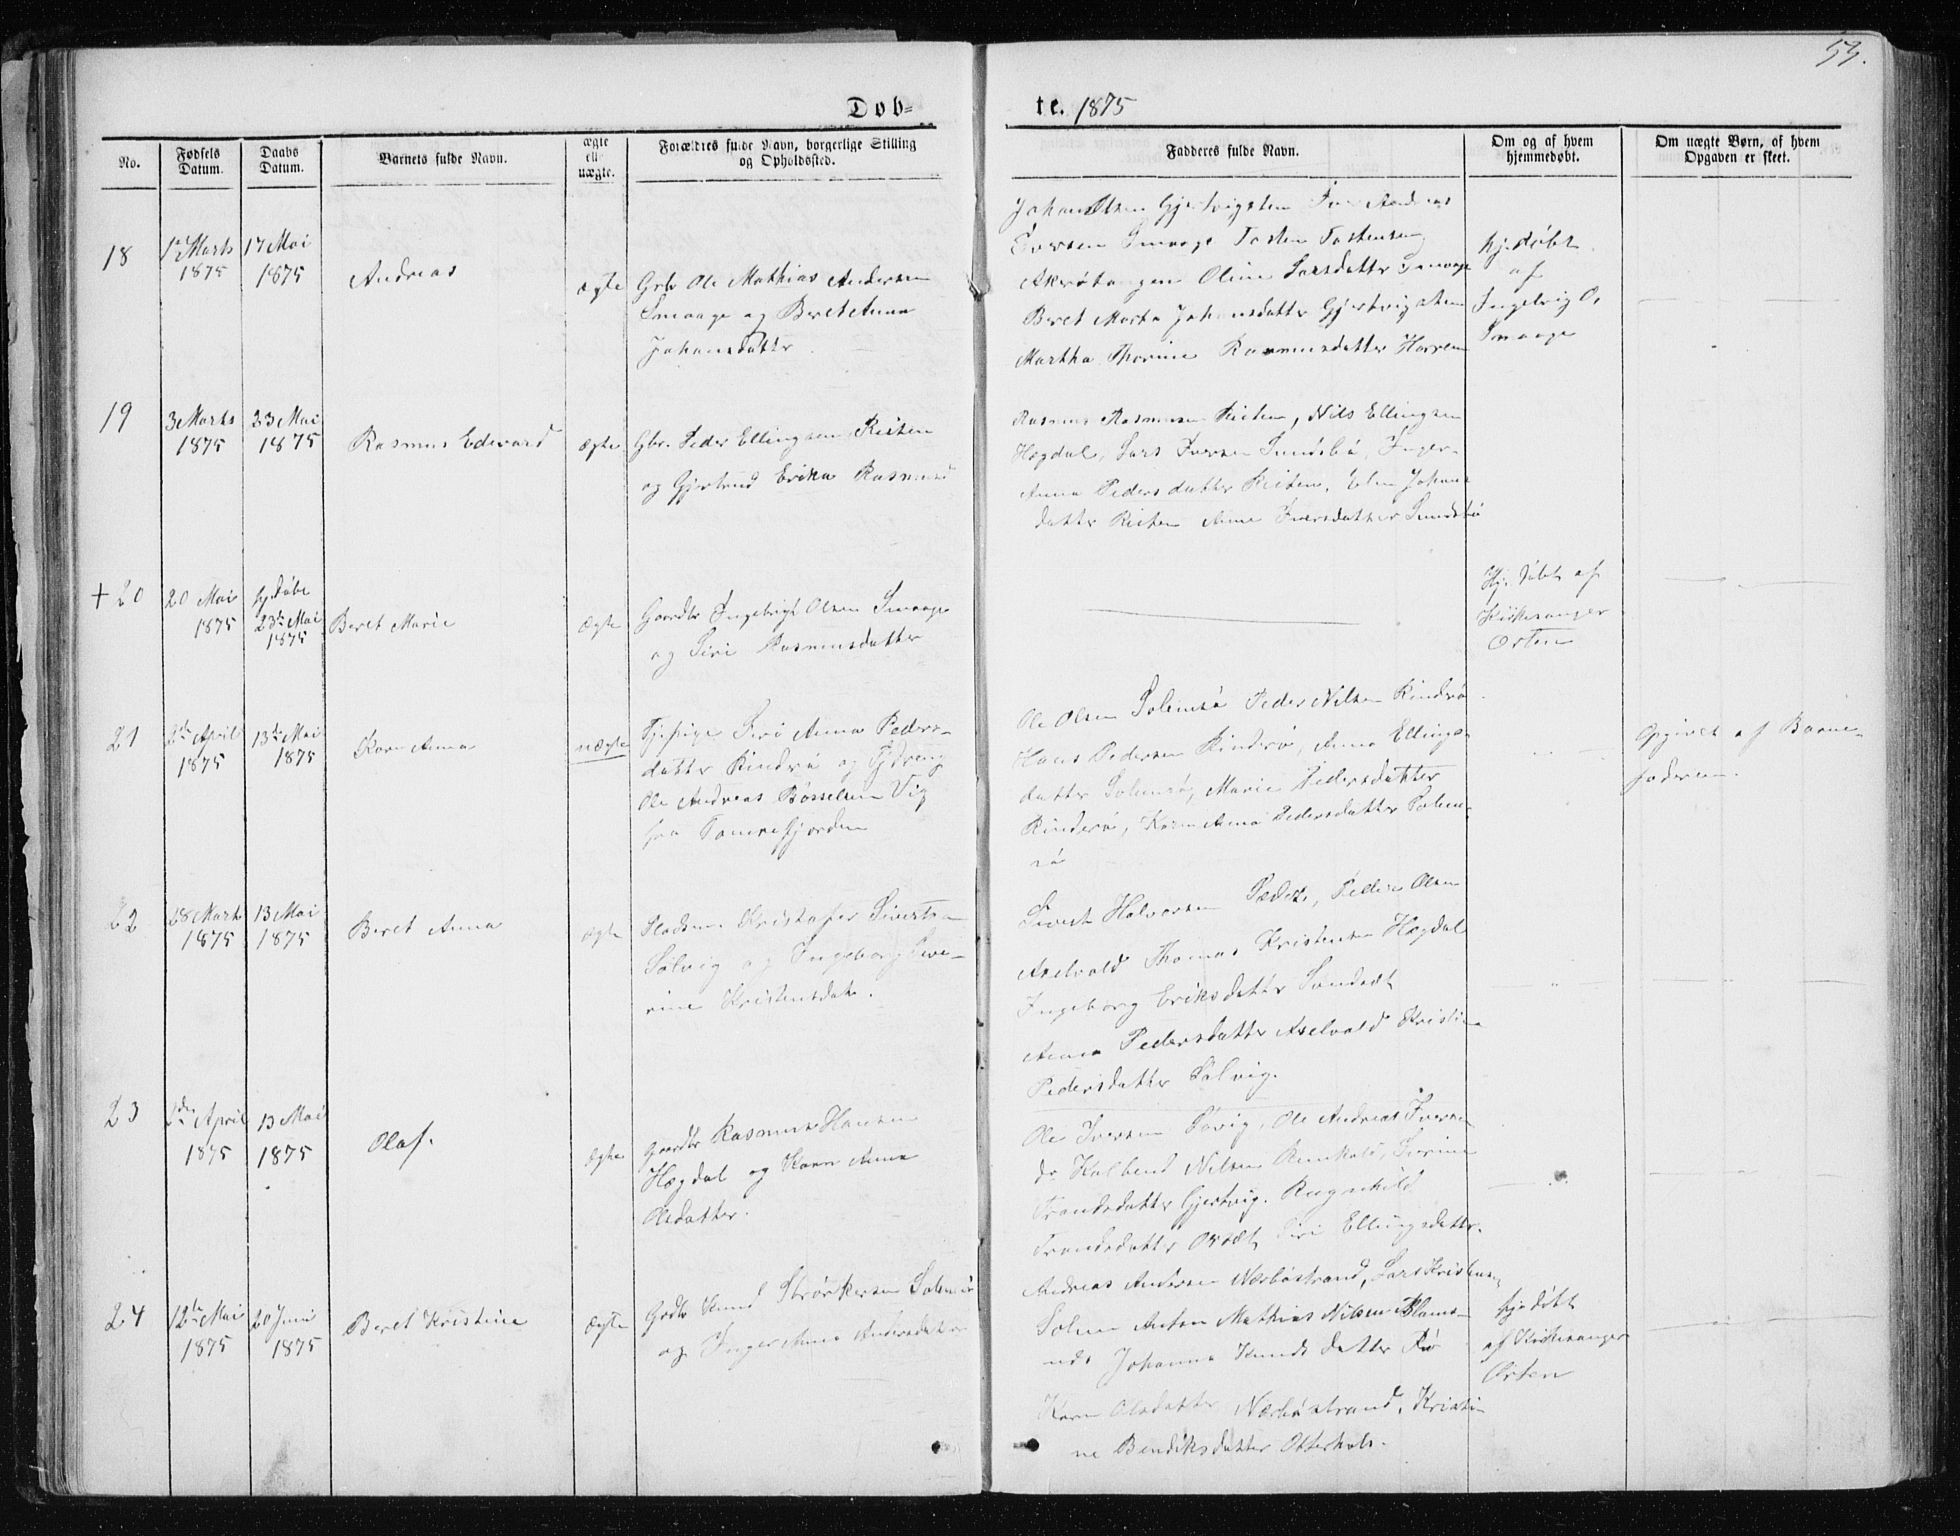 53.
Døb=
te. 1875
No.
Fødsels Datum.
Daabs Datum.
Barnets fulde Navn.
ægte ell. uægte.
Forældres fulde Navn, borgerlige Stilling og Opholdssted.
Fadderes fulde Navn.
Om og af hvem hjemmedøbt.
Om uægte Børn, af hvem Opgaven er skeet.
18
1ste Marts 1875
17 Mai 1875
Andreas
ægte
Gbr Ole Mathias Andersen
Smaage og Beret Anna
Johansdatter.
Johan Olsen Gjertvigsten Andreas
Iversen Smaage Tosten Tostensen
Akerøtangen Oline Larsdatter Smaage
Beret Marta Johansdatter Gjertvigsten
Martha Thorine Rasmusdatter Harrem
hj. døbt
af
Ingebrig O.
Smaage
19
3 Marts 1875
23 Mai 1875
Rasmus Edevard
ægte
Gbr. Peder Ellingsen Risten
og Gjertrud Erika Rasmusd
Rasmus Rasmusen Risten, Nils Ellingsen
Hægdal, Lars Iversen Sundsbø, Inger
Anna Pedersdatter Risten, Elen Johans
datter Risten Anne Iversdatter Sundsbø
+ 20
20 Mai 1875
hj. døbt 23de Mai 1875
Beret Marie
ægte
Gaardbr Ingebrigt Olsen Smaage
og Siri Rasmusdatter
Hj. døbt af
Kirkesanger
Orten
21
2de April 1875
13de Mai 1875
Karn Anna
uægte
Tj.pige Siri Anna Peders-
datter Rindrø og Tj.dreng
Ole Andreas Bøsselsen Vig
fra Tomrefjorden
Ole Olsen Solemsø Peder Nilsen Rindrø
Hans Pedersen Rinderø, Anna Ellings-
datter Solemsø, Marie Pedersdatter
Rinderø, Karn Anna Pedersdatter Solem-
sø
Opgivet af Barne-
faderen.
22
28 Marts 1875
13 Mai 1875
Beret Anna
ægte
Pladsm. Kristofer Sivertsen
Sølvig og Ingeborg Sive-
rine Kristensdat.
Sivert Halvorsen Peder Olsen
Axelvold Thomas Kristensen Hægdal
Ingeborg Eriksdatter Sandsæt
Anna Pedersdatter Axelvold Kristine
Pedersdatter Sølvig.
23
April 1875
13 Mai 1875
Olaf.
Ægte
Gaardbr Rasmus Hansen
Hægdal og Karn Anna
Olsdatter.
Ole Iversen Søvig, Ole Andreas Iversen
do Kolbend Nilsen Sirine
Trondsdatter Gjertvig. Ragnhild
Trondsdatter Orsæt Siri Ellingsdatter
24
12te Mai 1875
20 Juni 1875
Beret Kristine
Ægte
Grdbr Knud Størkersen Solemsø
og Inger Anna Andersdatter
Andreas Andersen Nærbøstrand, Lars Kristensen
Solem Anton Mathias Nilsen Mams-
unds Johanna Knudsdatter Rø
Karn Olsdatter Nærbøstrand, Kristi-
ne Bendiksdatter Otterhals.
hj. døbt
af Kirkesanger
Orten